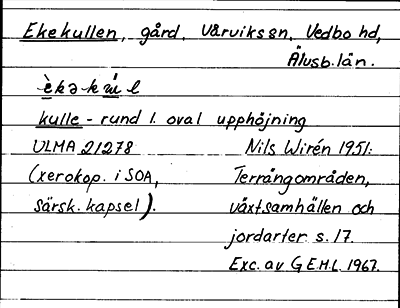 Ekekullen, gård, Vårviks sn, Vedbo hd,
Älvsb. län.
kulle - rund l. oval upphöjning
ULMA 21278 Nils Wirén 1951:
(xerokop. i SOA, Terrängområden,
särsk. kapsel). växtsamhällen och
jordarter s. 17.
Exc. av G.E.H.L. 1967.